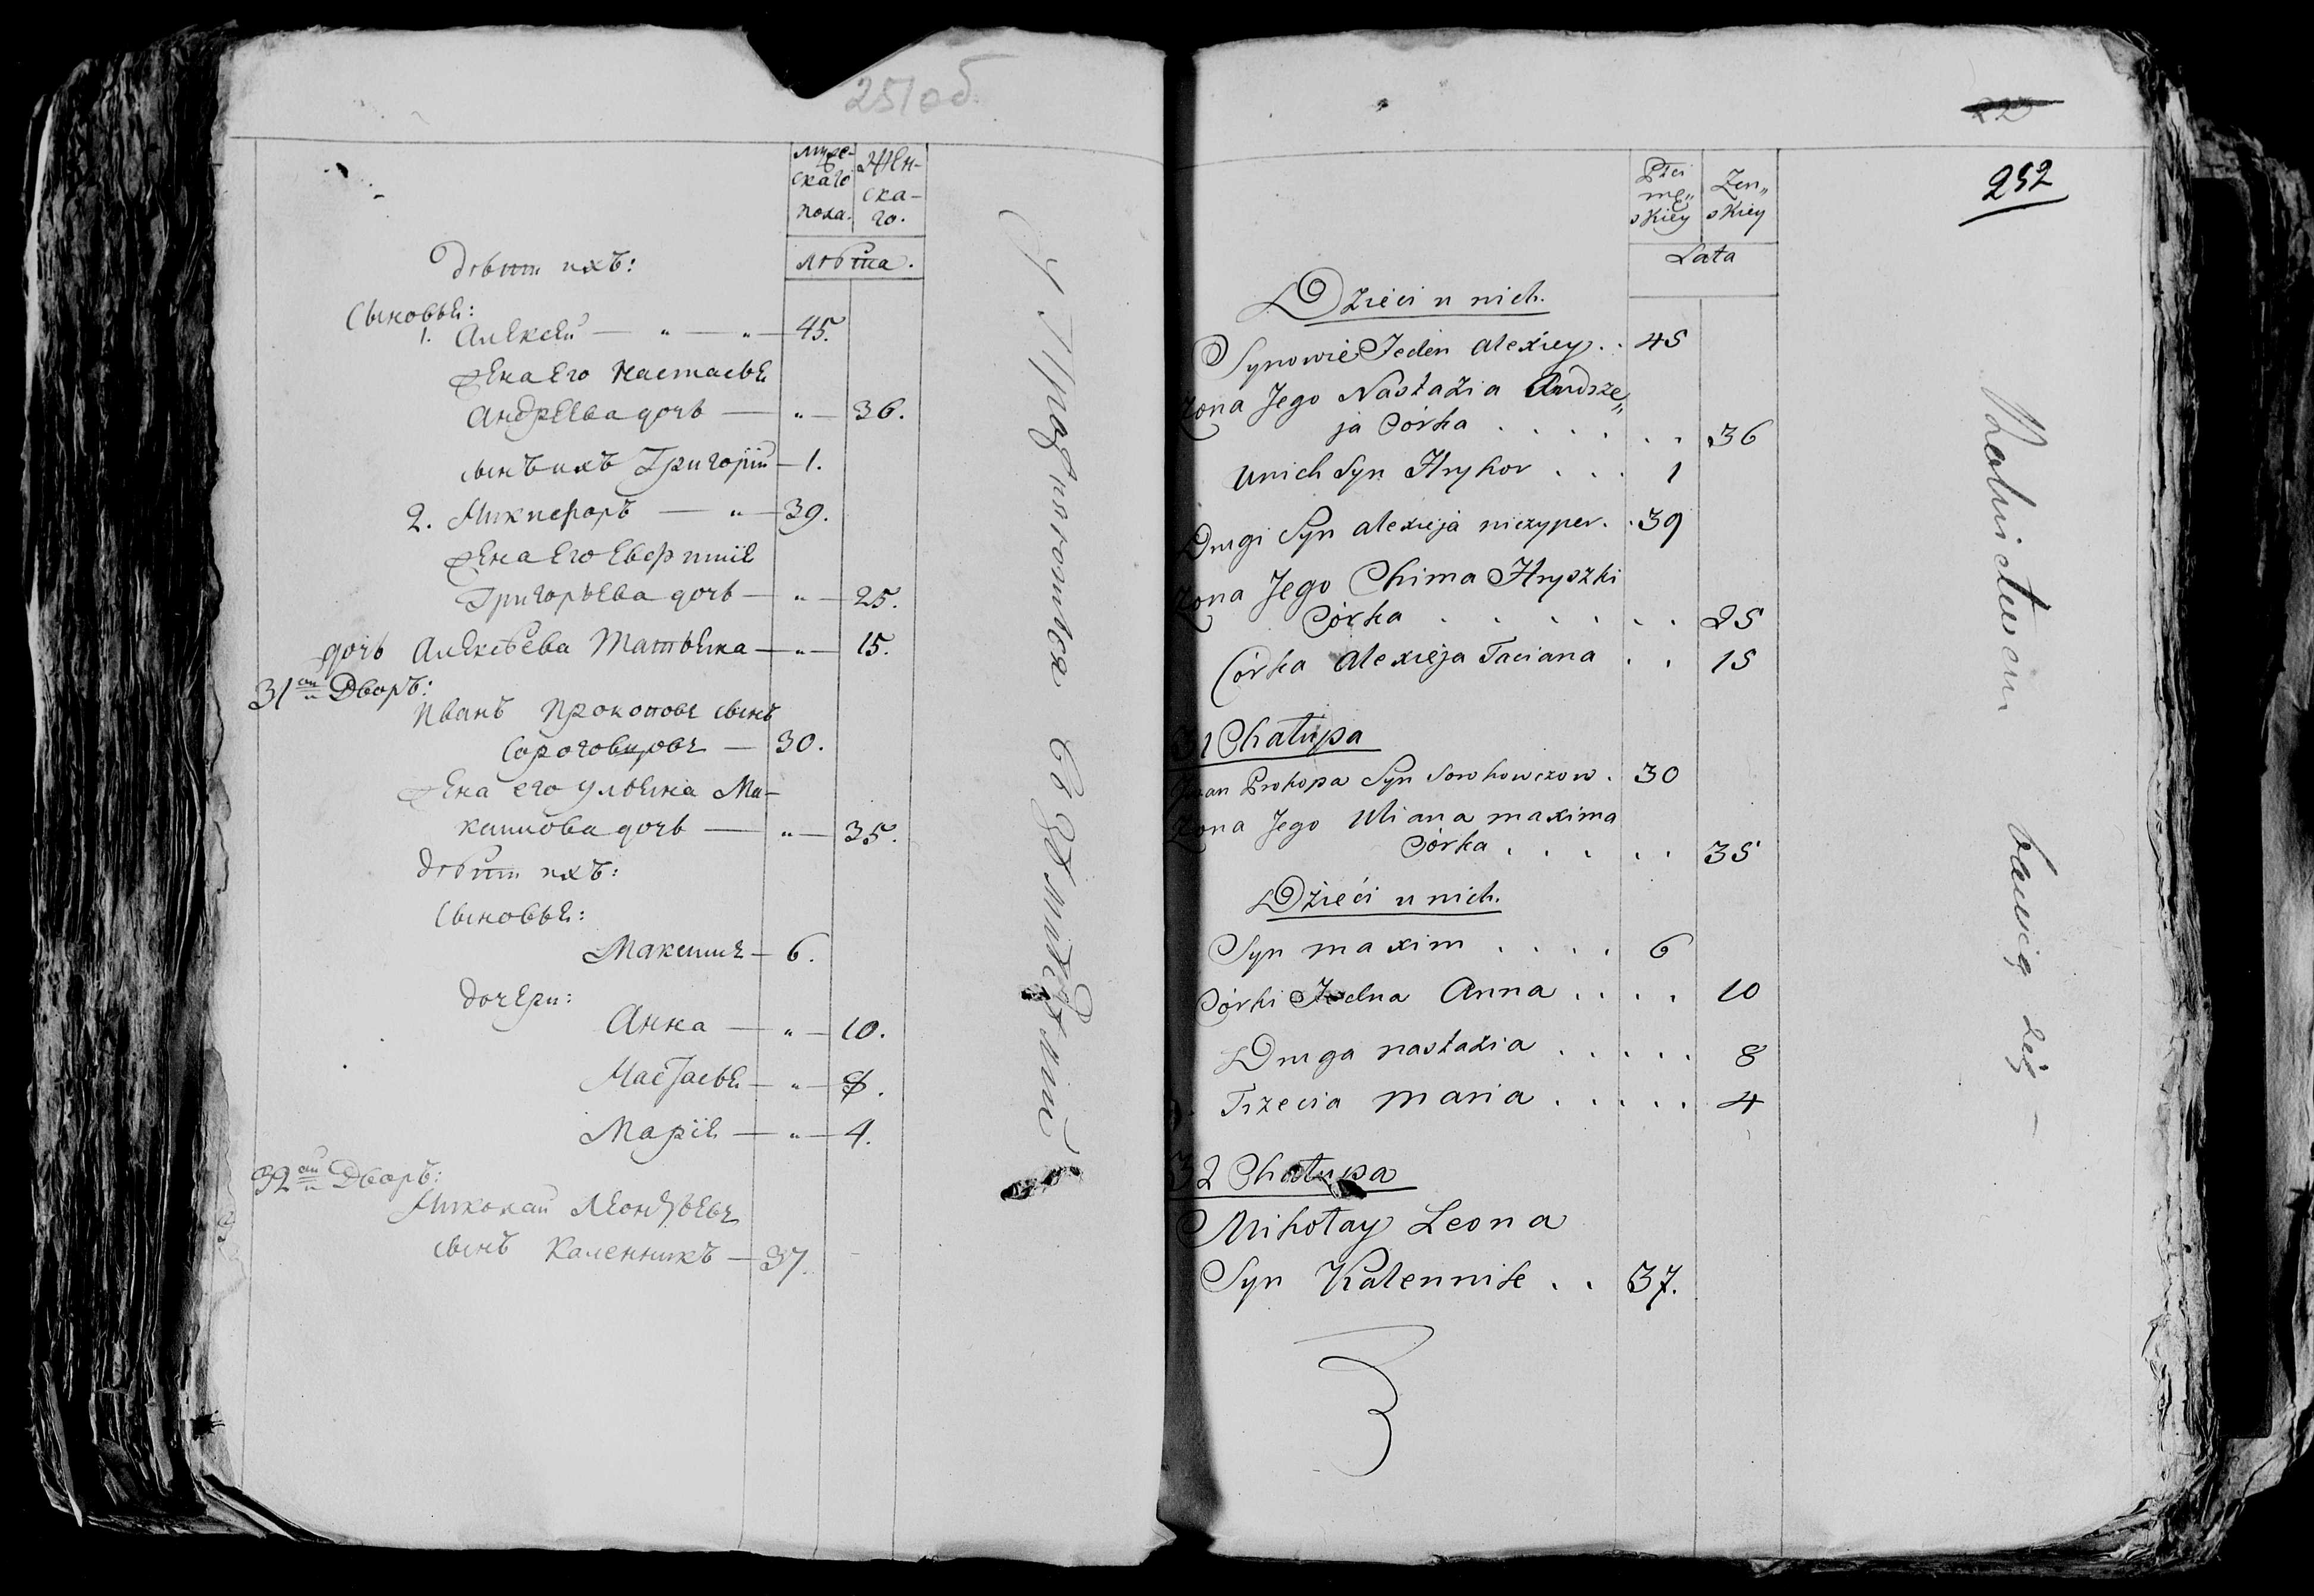 251об
муже-
скаго
пола.
жен-
ска-
го.
лѣта.
Дѣти ихъ:
Сыновья:
1. Алексей — „ — „ — 45.
жена его Настасья
Андреева дочь — „ — 36.
сынъ ихъ Григорій — 1.
2. Никифоръ — „ — 39.
жена его
Григорьева дочь — „ — 25.
дочь Алексѣева Татьяна — „ — 15.
31й Дворъ:
Иванъ Прокоповъ сынъ
— 30.
жена его Ульяна Ма-
ксимова дочь — „ — 35.
Дѣти ихъ:
Сыновья:
Максимъ — 6.
Дочери:
Анна — „ — 10.
Настасья — „ — 8.
Марія — „ — 4.
32й Дворъ:
Николай Леонтьевъ
сынъ Каленникъ — 37.
22
252
Płci
mę„
skiey
Żen„
skiey
Lata
Dzieci u nich.
Synowie Jeden Alexiey . . 45
Żona Jego Nastazia Andrze„
ja Córka . . . . . . 36
U nich Syn Hryhor . . . 1
Drugi Syn Alexieja . . 39
Żona Jego Chima Hryszki
Córka . . . . . . . 25
Córka Alexieja Taciana . . 15
31 Chałupa
Iwan Prokopa Syn Sorohowczow . 30
Żona Jego Uliana Maxima
Córka . . . . . 35
Dzieci u nich.
Syn Maxim . . . . 6
Córki Jedna Anna . . . . 10
Druga Nastazia . . . . . 8
Trzecia Maria . . . . . 4
32 Chałupa
Mikołay Leona
Syn Kalennik . . 37.